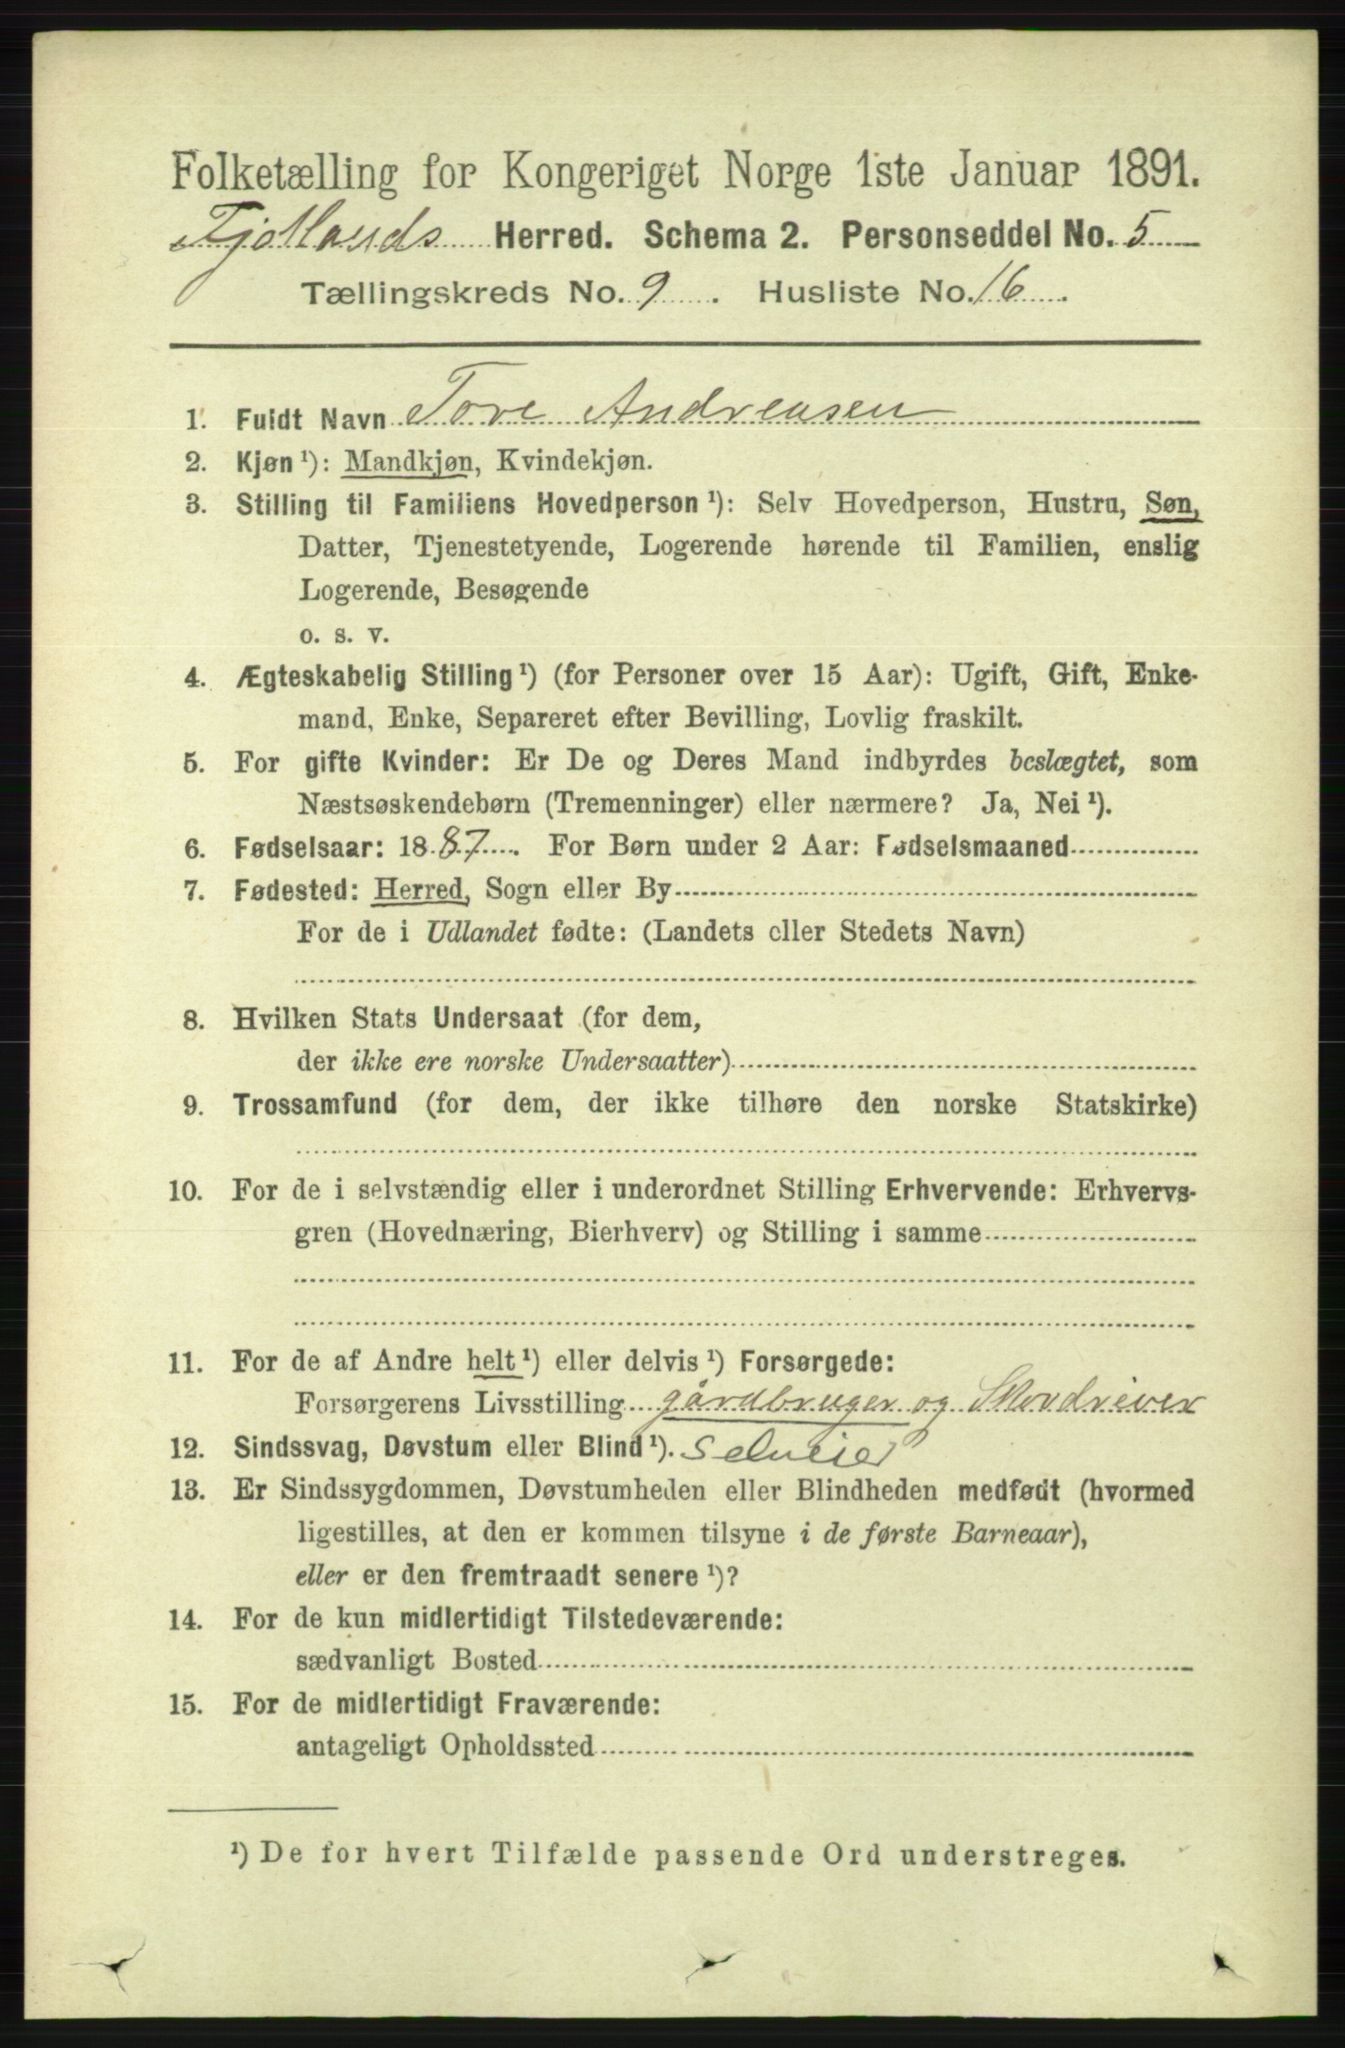 Folketælling for Kongeriget Norge 1ste Januar 1891.
Fjotlands Herred. Schema 2. Personseddel No. 5
Tællingskreds No. 9. Husliste No. 16.
1. Fuldt Navn Tore Andreasen
2. Kjøn ¹): Mandkjøn, Kvindekjøn.
3. Stilling til Familiens Hovedperson ¹): Selv Hovedperson, Hustru, Søn,
Datter, Tjenestetyende, Logerende hørende til Familien, enslig
Logerende, Besøgende
o. s. v.
4. Ægteskabelig Stilling ¹) (for Personer over 15 Aar): Ugift, Gift, Enke-
mand, Enke, Separeret efter Bevilling, Lovlig fraskilt.
5. For gifte Kvinder: Er De og Deres Mand indbyrdes beslægtet, som
Næstsøskendebørn (Tremenninger) eller nærmere? Ja, Nei ¹).
6. Fødselsaar: 1887. For Børn under 2 Aar: Fødselsmaaned
7. Fødested: Herred, Sogn eller By
For de i Udlandet fødte: (Landets eller Stedets Navn)
8. Hvilken Stats Undersaat (for dem,
der ikke ere norske Undersaatter)
9. Trossamfund (for dem, der ikke tilhøre den norske Statskirke)
10. For de i selvstændig eller i underordnet Stilling Erhvervende: Erhvervs-
gren (Hovednæring, Bierhverv) og Stilling i samme
11. For de af Andre helt ¹) eller delvis ¹) Forsørgede:
Forsørgerens Livsstilling gårdbruger og Skovdriver
12. Sindssvag, Døvstum eller Blind ¹). Selveier
13. Er Sindssygdommen, Døvstumheden eller Blindheden medfødt (hvormed
ligestilles, at den er kommen tilsyne i de første Barneaar),
eller er den fremtraadt senere ¹)?
14. For de kun midlertidigt Tilstedeværende:
sædvanligt Bosted
15. For de midlertidigt Fraværende:
antageligt Opholdssted
¹) De for hvert Tilfælde passende Ord understreges.